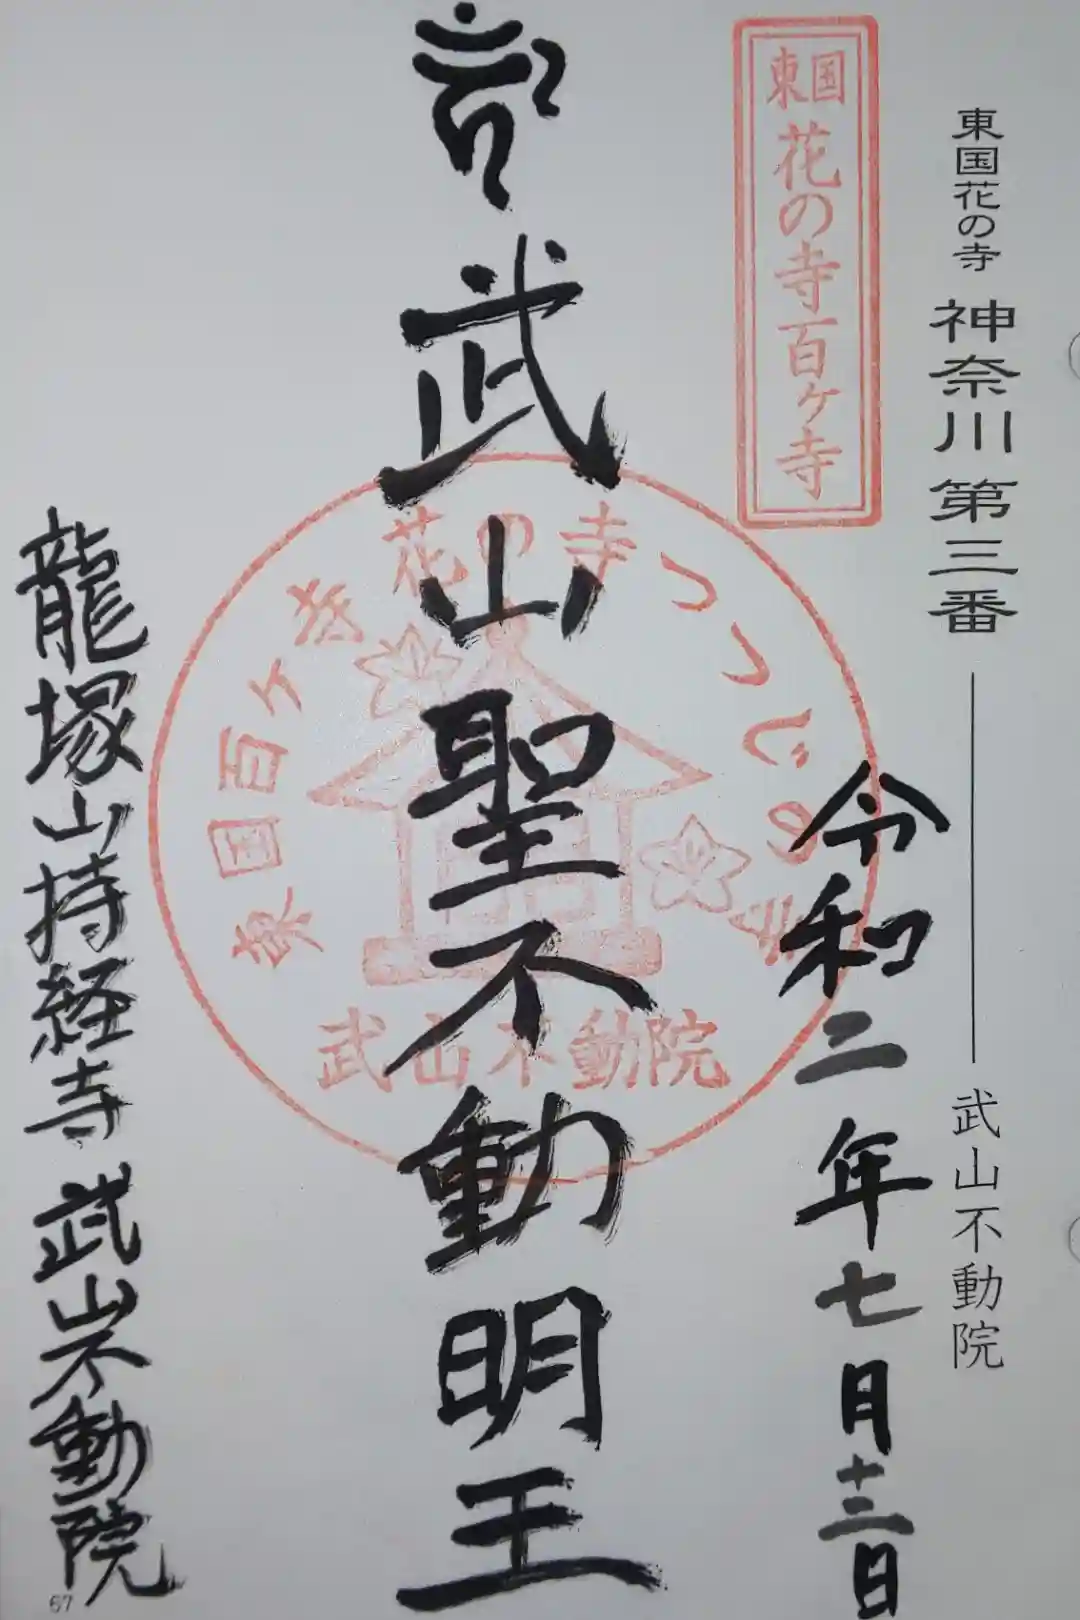 東国花の寺 神奈川第三番 武山不動院
東国
花の寺百ヶ寺
令和二年七月十三日
武山聖不動明王
東国百ヶ寺花の寺つつじの寺
武山不動院
龍塚山持経寺 武山不動院
67